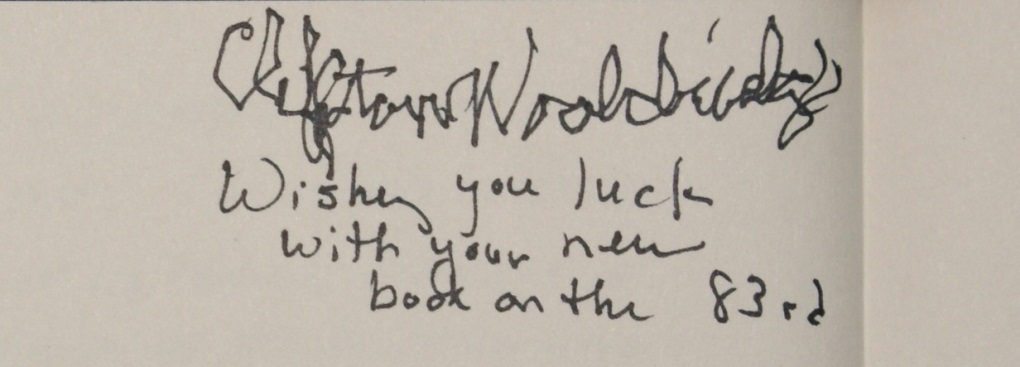 Clifton Wooldridge
Wishes you luck
with your new
book on the 83rd